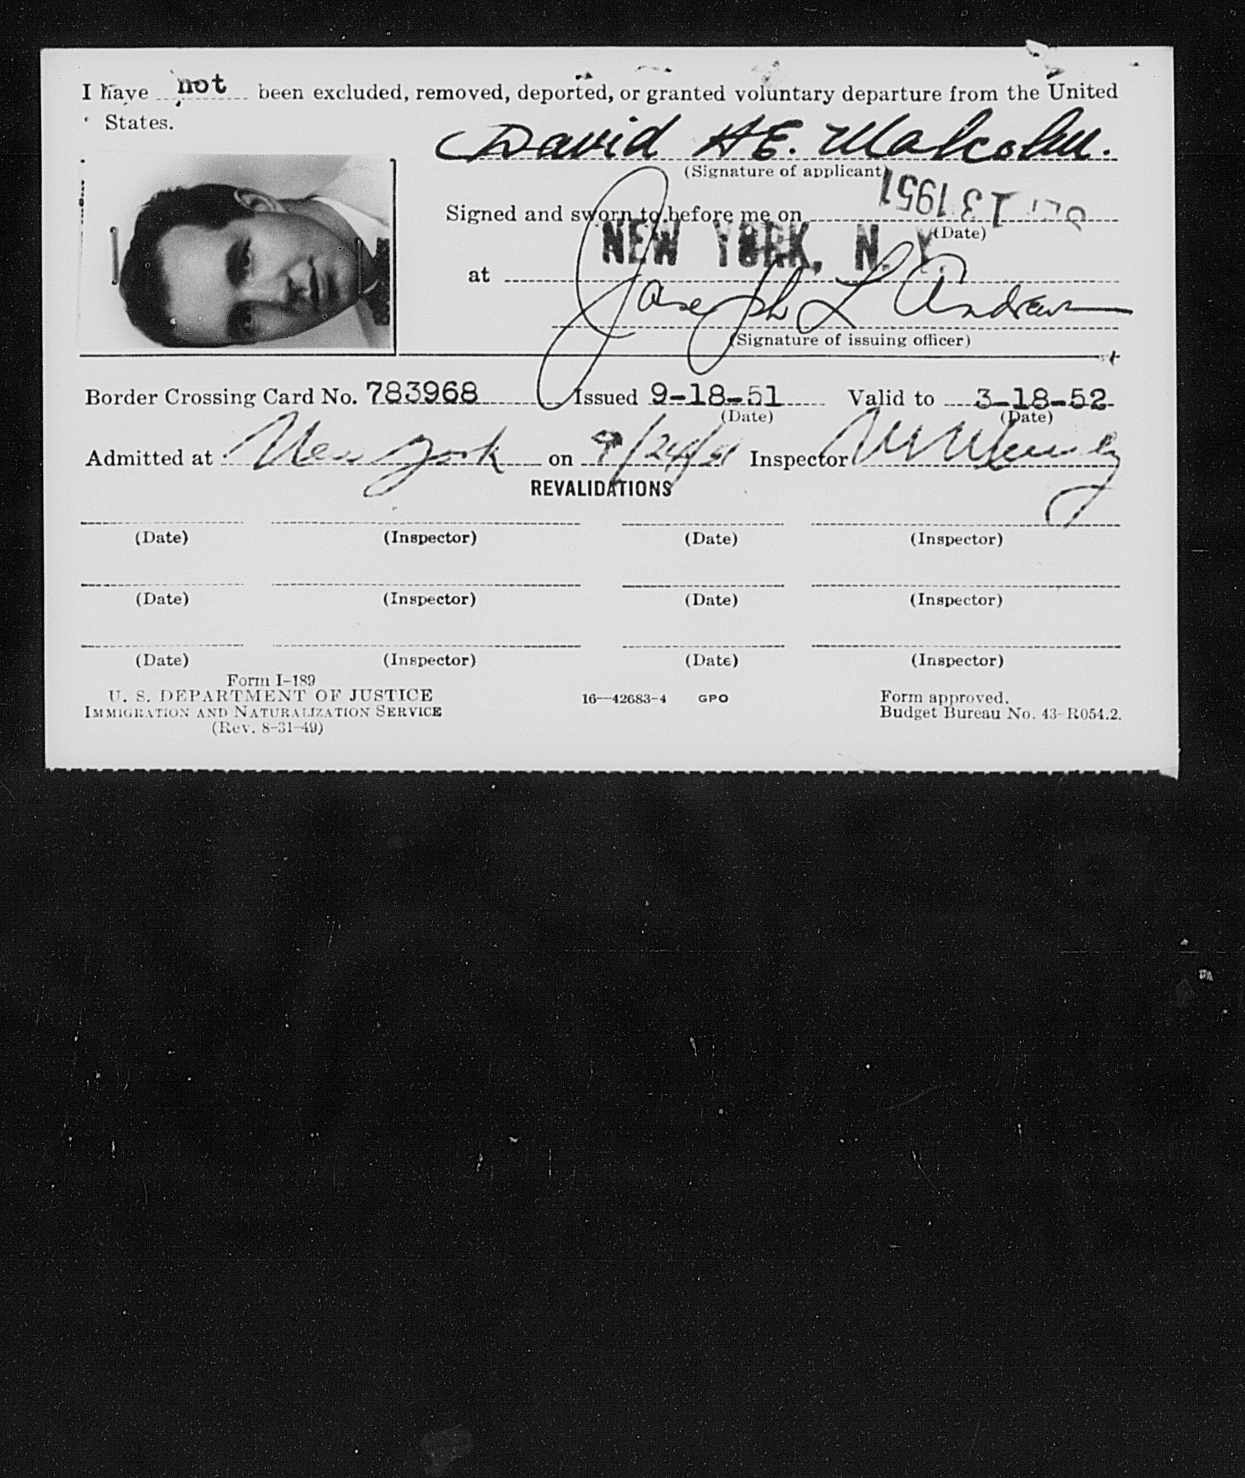 I have not been excluded, removed, deported, or granted voluntary departure from the United
States.
David HE. Malcolm.
(Signature of applicant)
Signed and sworn to before me on SEP 13 1951
(Date)
at NEW YORK, N. Y.
Joseph L Andrews
(Signature of issuing officer)
Border Crossing Card No. 783968 Issued 9-18-51 Valid to 3-18-52
(Date) (Date)
Admitted at New York on 9/24/51 Inspector
REVALIDATIONS
(Date) (Inspector) (Date) (Inspector)
(Date) (Inspector) (Date) (Inspector)
(Date) (Inspector) (Date) (Inspector)
Form I-189
U. S. DEPARTMENT OF JUSTICE 16—42683-4 GPO Form approved.
IMMIGRATION AND NATURALIZATION SERVICE Budget Bureau No. 43-R054.2.
(Rev. 8-31-49)